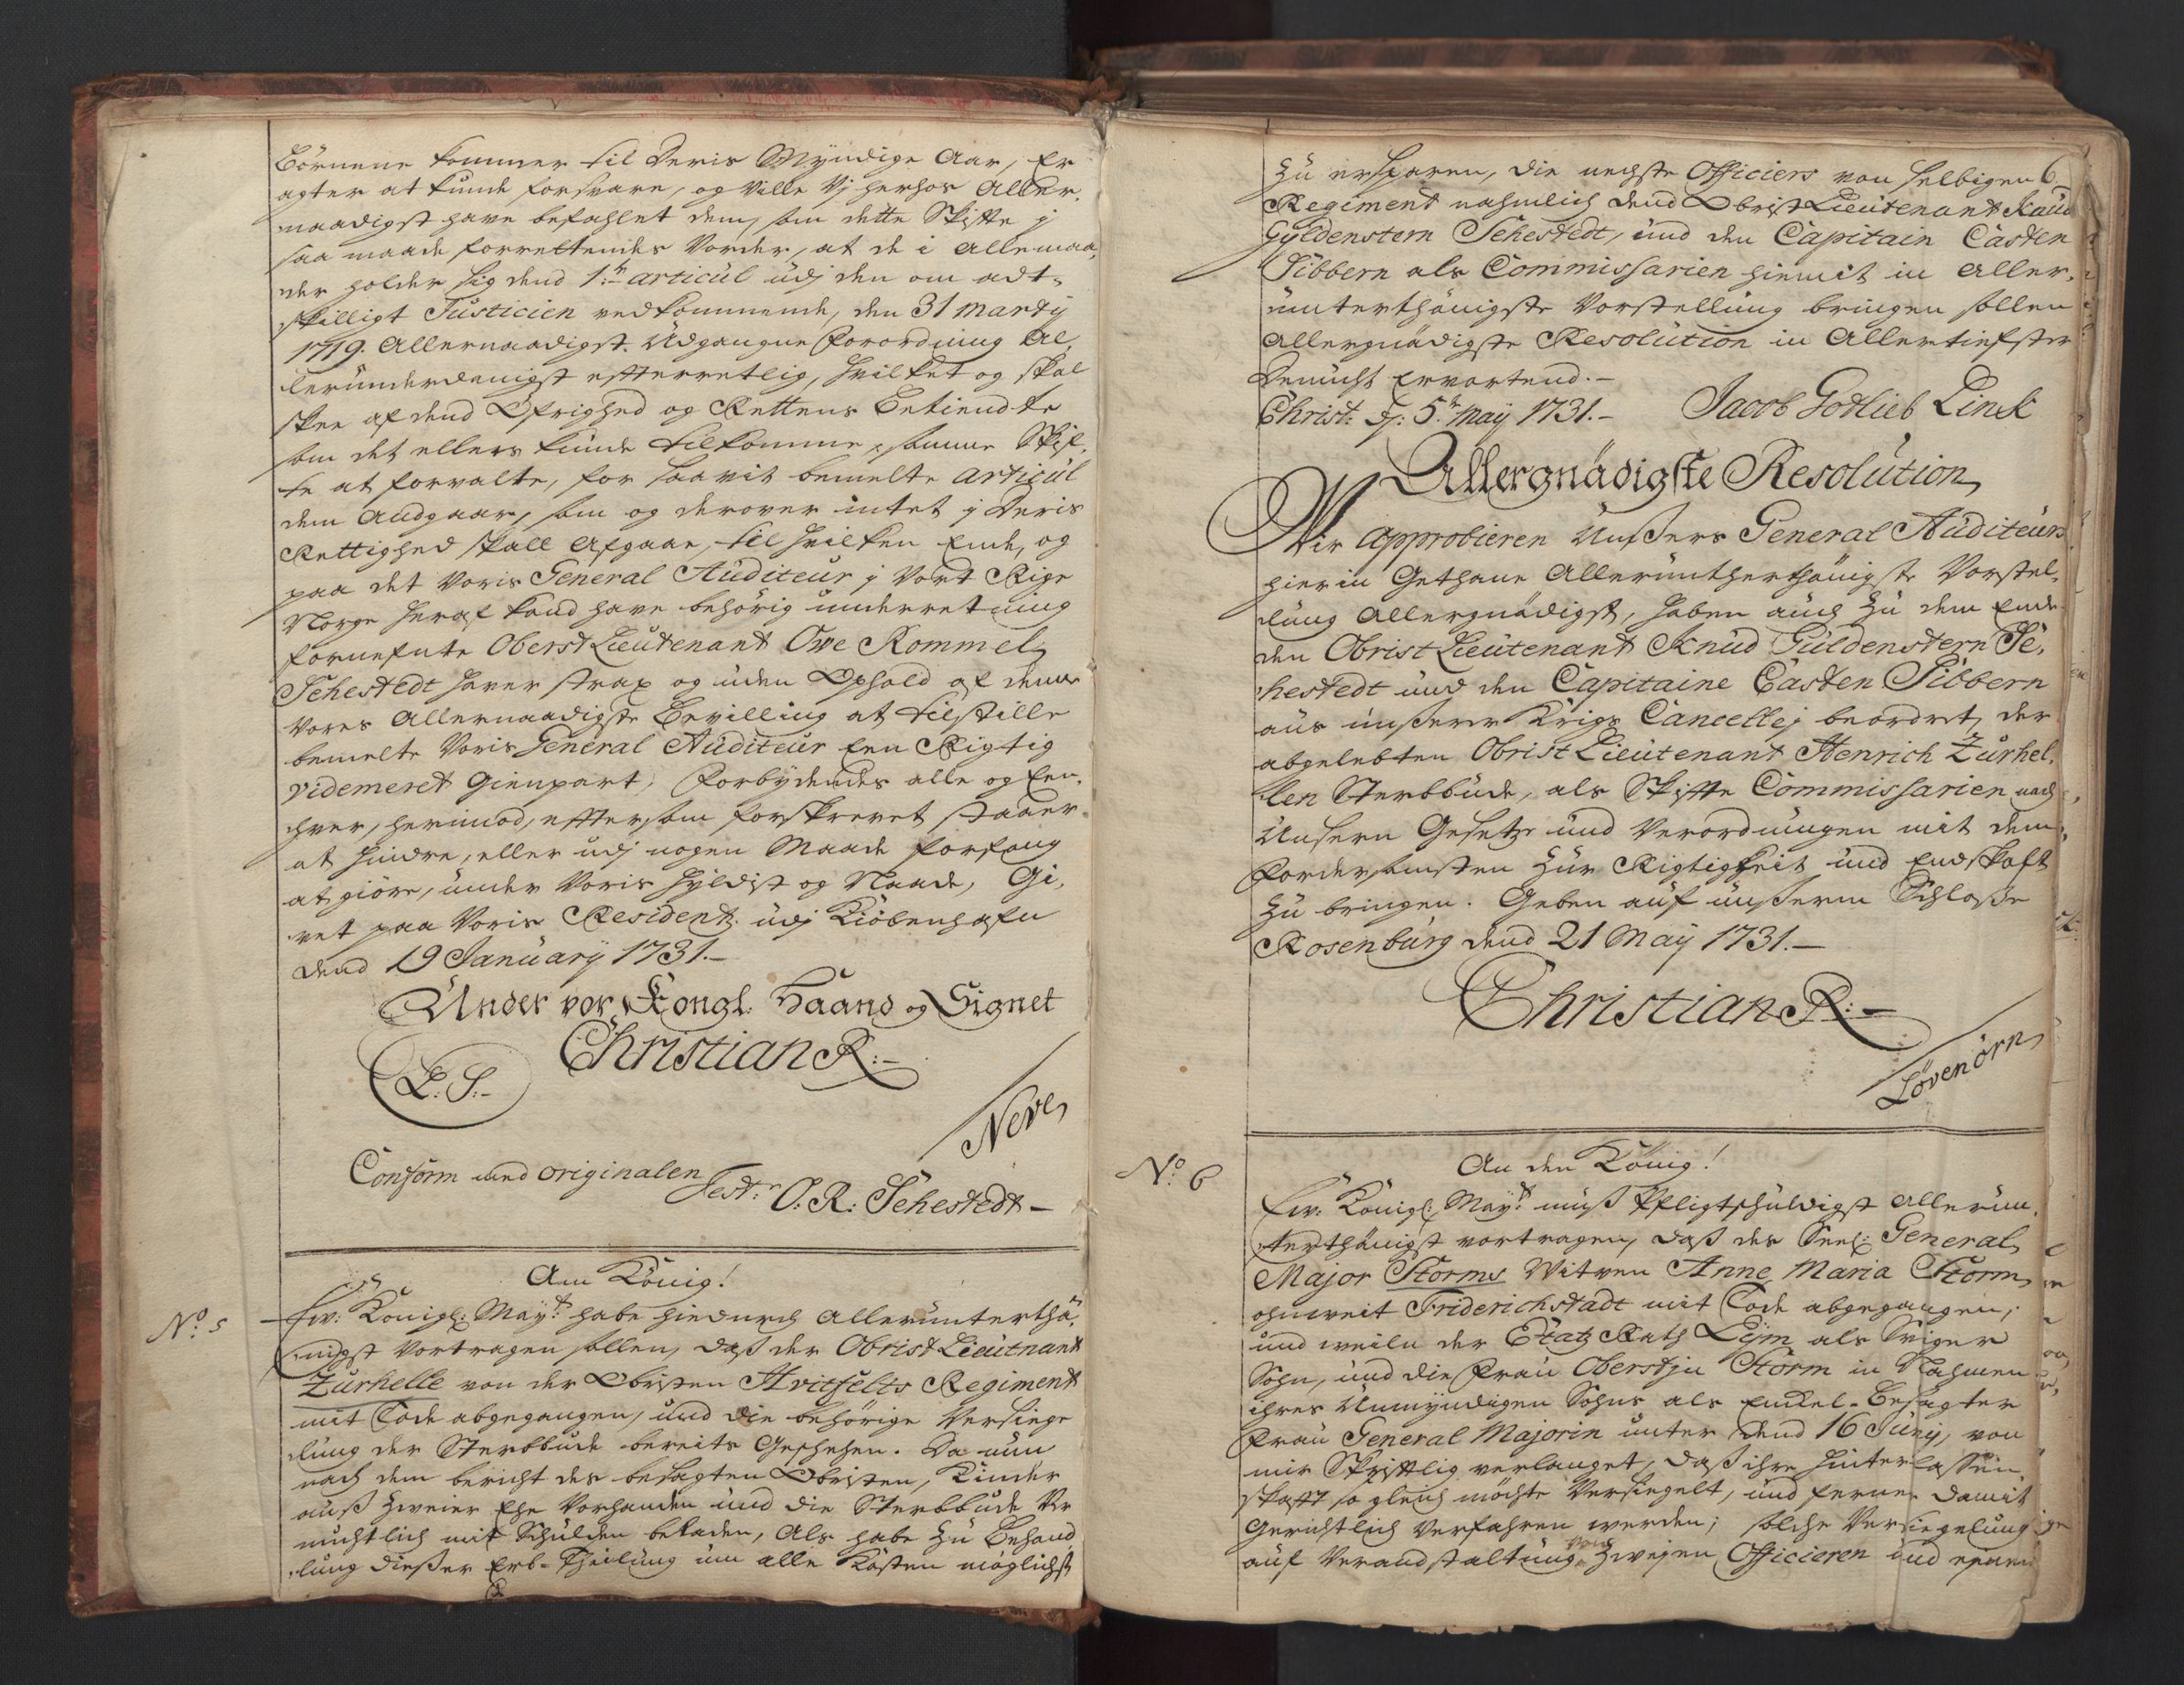 Børnene kommer til deris Myndige Aar, Er
agter at kunde forsvare, og Ville Vj herhos Aller-
naadigst have befahlet dem, som dette Skifte j
saa maade forrettendes Vorder, at de i Allemaa-
der holder sig dend 1te articul udj den om adt-
skilligt Justicien vedkommende, den 31 Martij
1719. Allernaadigst Udgangne Forordning Al-
lerunderdanigst efterretlig, hvilket og skal
skee af dend Øfrighed og Rettens Betiendte
som det ellers kunde tilkomme, samme Skif-
te at forvalte, for saavit bemelte Articul
dem Andgaar, som og derover intet j Deris
Rettighed skall Afgaae, til hvilken Ende, og
paa det Voris General Auditeur j Vort Rige
Norge heraf kand have behörig underretning
fornefnte Oberst Lieutenant Ove Rommel
Sehestedt haver strax og uden Ophold af denne
Vores Allernaadigste Bevilling at tilstille
bemelte Voris General Auditeur Een Rigtig
Videmeret Gienpart, Forbydendes alle og Een-
hver, hermod, eftersom forskrevet staaer
at hindre, eller udj nogen Maade forfang
at giöre, under Voris hyldist og Naade, Gi-
vet paa Voris Resident udj Kiöbenhafn
Dend 19 January 1731.-
Under vor Kongl: Haand og Signet
Christian R:-
L: S:-
Neve
Conform med originalen
Test: O: R: Sehestedt-
Am König!
No 5
Ew: Königl: Mayt: habe hiedurch Allerunterthä-
nigst Vortragen sollen, daß der Obrist Lieutnant
Zurhelle von der Obristen Hvitfelts Regiment
mit Tode abgegangen, und die behörige Versiege
lung der Sterbbude bereits Geschehen. Da nun
nach dem bericht des besagten Obristen, Kinder
auß Zweier Ehe Vorhanden und die Sterbbude Ver
muhtlich mit Schulden beladen, Als habe zu Behand
lung dießer Erb-Theilung um alle Kosten möglichst
6
Zu ersparen, die nechste Officiers von selbigen
Regiment nahmlich dend Obrist Lieutenant Knud
Gyldenstern Sehestedt, und den Capitain Casten
Sibbern als Commissarien hiemit in Aller-
unterthänigste Vorstellung bringen sollen
Allergnädigste Resolution in Allertiefster
Demuht Erwartend.-
Christ: d: 5t May 1731.- Jacob Godlieb Linck
Allergnädigste Resolution
Wir Approbieren Unßers General Auditeurs
hierin Gethane Alleruntherthänigste Vorstel-
lung Allergnädigst, haben auch Zu dem Ende
den Obrist Lieutenant Knud Güldenstern Se-
hestedt und den Capitaine Casten Sibbern
aus unßerer Krigs Cancellej beordret, der
abgelebten Obrist Lieutenant Henrich Zurhel-
len Sterbbude, als Skifte Commissarien nach
Unsern Gesetze und Verordnungen mit dem
Fordersamsten Zur Rigtigkeit und Endskaft
Zu bringen. Geben auf unßerm Schloße
Rosenburg dend 21 May 1731.-
Christian R:-
Lövenörn
No 6
An den König!
Ew: Königl: Mayt: muß Pfligtschuldigst Allerun-
terthänigst vortragen, daß der Seel: General
Major Storms Witwen Anne Maria Storm
ohnweit Friderichstadt mit Tode abgegangen;
und weiln der Etatz Rath Lejm als Sviger
Sohn, und die Frau Oberstju Storm in Nahmen
ihres Unmyndigen Sohns als Enckel-Besagter
Frau General Majorin unter dend 16 Juny, von
mir Skriftlig verlanget, daß ihre hinterlassen
skaft so gleich möchte Versiegelt, und ferner damit
Gerichtlich Verfahren werden; solche Versiegelung
auf Verandstaltung von Zweyen Officieren und einem